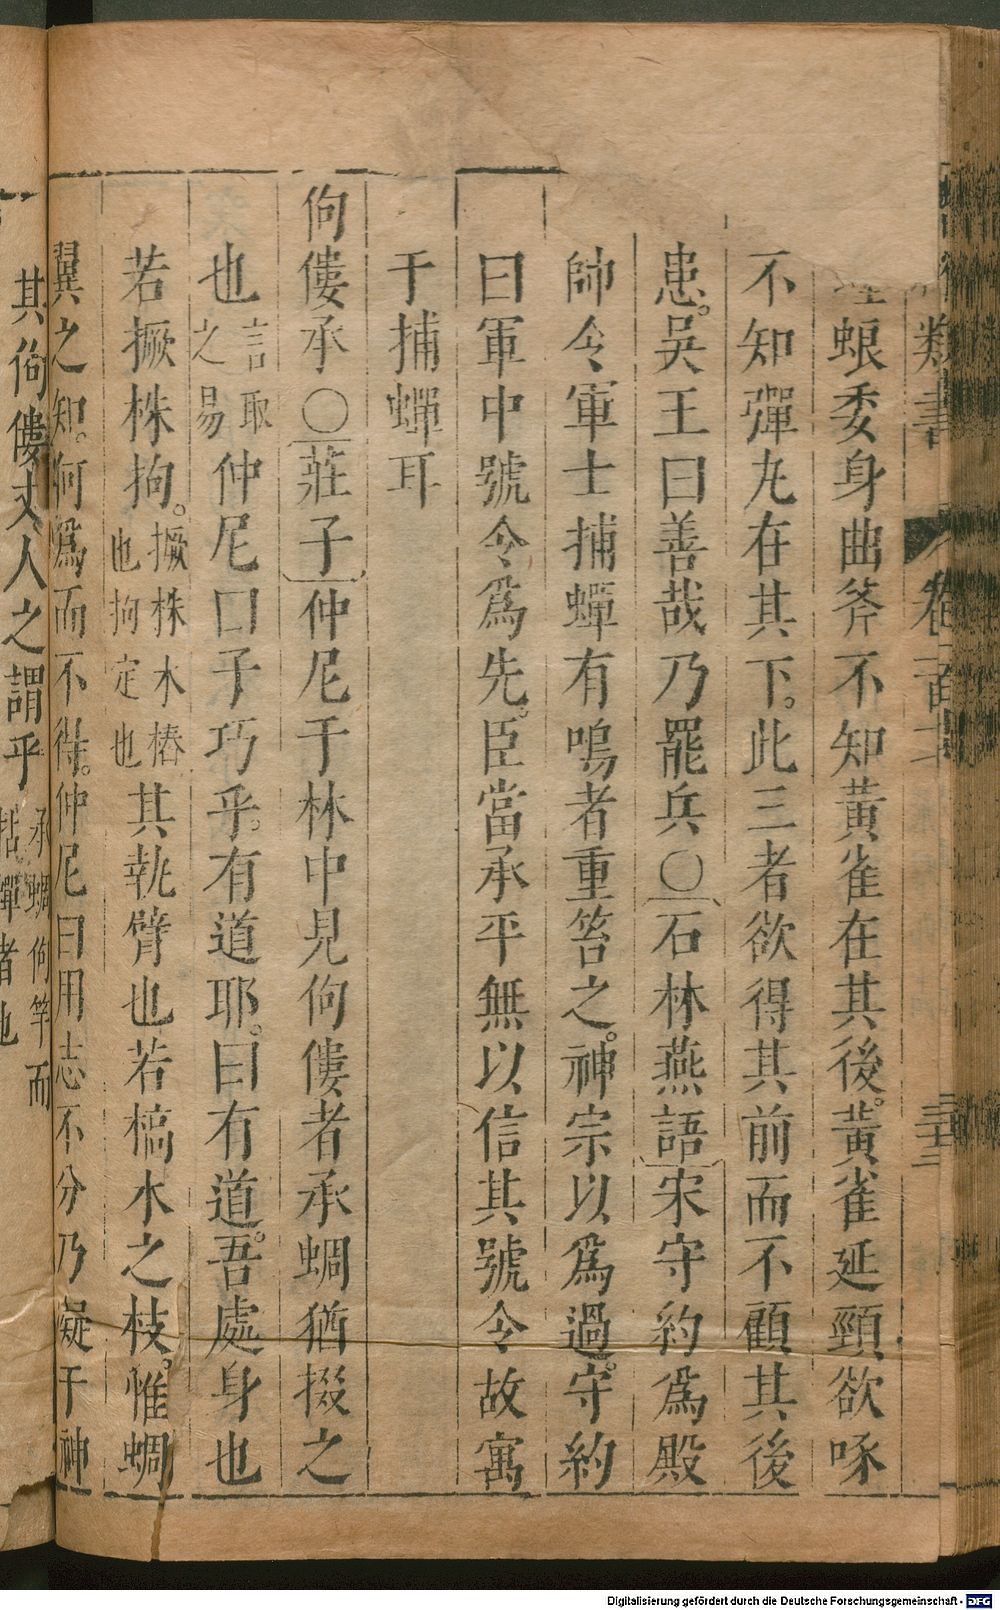 類書 卷一百二 三十三
螂委身曲斧不知黃雀在其後。黃雀延頸欲啄
不知彈丸在其下。此三者欲得其前而不顧其後
患。吳王曰善哉乃罷兵〇石林燕語宋守約為殿
帥令軍士捕蟬有鳴者重笞之。神宗以爲過。守約
曰軍中號令爲先。臣當承平無以信其號令故寓
于捕蟬耳
佝僂承〇莊子仲尼于林中見佝僂者承蜩猶掇之
也言取之易仲尼曰子巧乎。有道耶。曰有道。吾處身也
若撅株拘。撅株木樁也拘定也其執臂也若槁木之枝。惟蜩
翼之知。何爲而不得。仲尼曰用志不分乃凝于神
其佝僂丈人之謂乎承蜩佝竿而蟬者也
Digitalisierung gefördert durch die Deutsche Forschungsgemeinschaft - DFG